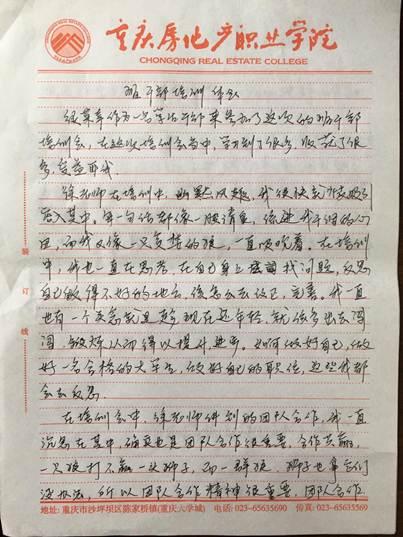 重庆房地产职业学院
CHONGQING REAL ESTATE COLLEGE
班干部培训体会
很荣幸作为一名学生干部来参加了这次的班干部
培训会,在这次培训会当中,学习到了很多,收获了很
多,受益匪浅
徐老师在培训中,幽默风趣,我很快就
融入其中,每一句话都像一股清泉,
田,而我又像一只 的狼,一直吸吮着。在培训
中,我也一直在思考,在自己身上 找问题,反思
自己做得不好的地方,该怎么去改正,完善。我一直
也有一个 就是 现在还年轻,就该多出去闯
闯,锻炼从而得以提升,进步。如何做好自己,做
好一名合格的大学生,做好自己的职位,这些我都
会去反思。
在培训会中,徐老师 到的团队合作,我一直
沉思在其中,确实也是团队合作很重要,合作共赢,
一只狼打不赢一头狮子,而一群狼,狮子也拿它们
没办法,所以团队合作精神很重要,团队合作
装
订
线
地址:重庆市沙坪坝区陈家桥镇(重庆大学城) 电话:023-65635690 传真:023-65635569